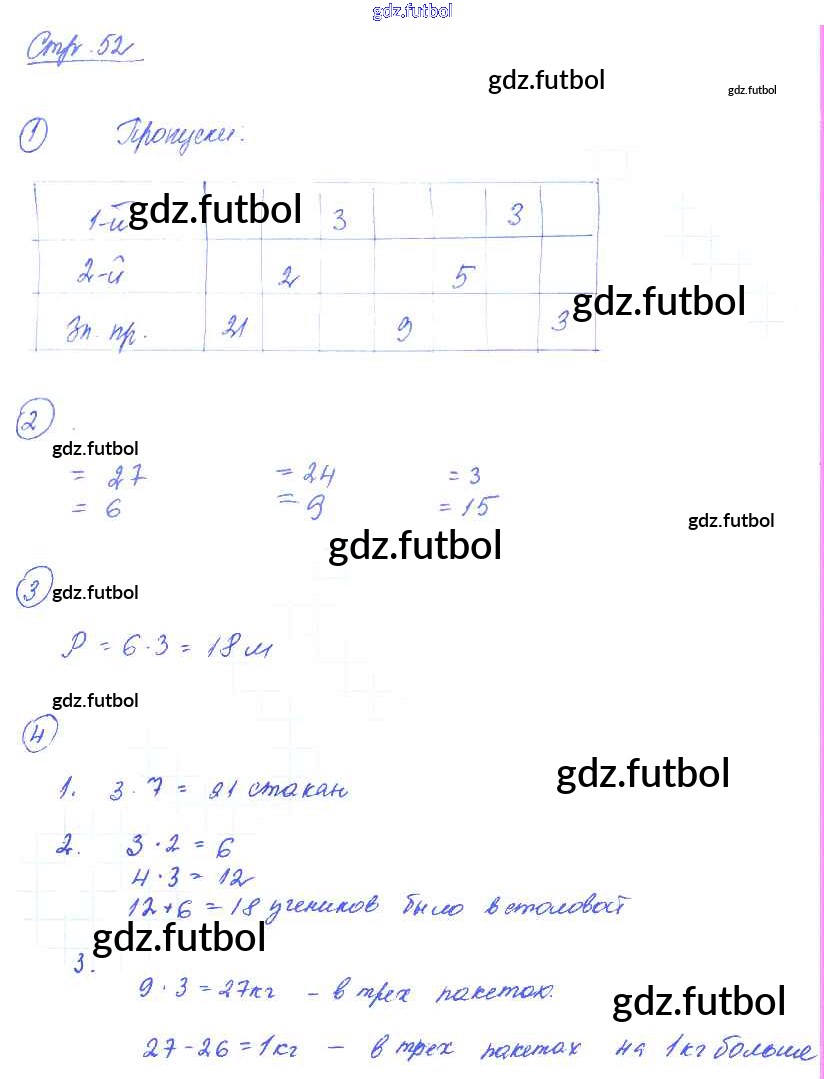 gdz.futbol
Стр. 52
gdz.futbol
gdz.futbol
1 Пропуски:
1-й 3 3
gdz.futbol
2-й 2 5
gdz.futbol
Зн. пр. 21 9 3
2
gdz.futbol
= 27 = 24 = 3
= 6 = 9 = 15
gdz.futbol
gdz.futbol
3 gdz.futbol
P = 6·3 = 18м
gdz.futbol
4
gdz.futbol
1. 3·7 = 21 стакан
2. 3·2 = 6
4·3 = 12
12+6 = 18 учеников было в столовой
gdz.futbol
3.
9·3 = 27кг – в трех пакетах.
gdz.futbol
27-26 = 1кг – в трех пакетах на 1кг больше